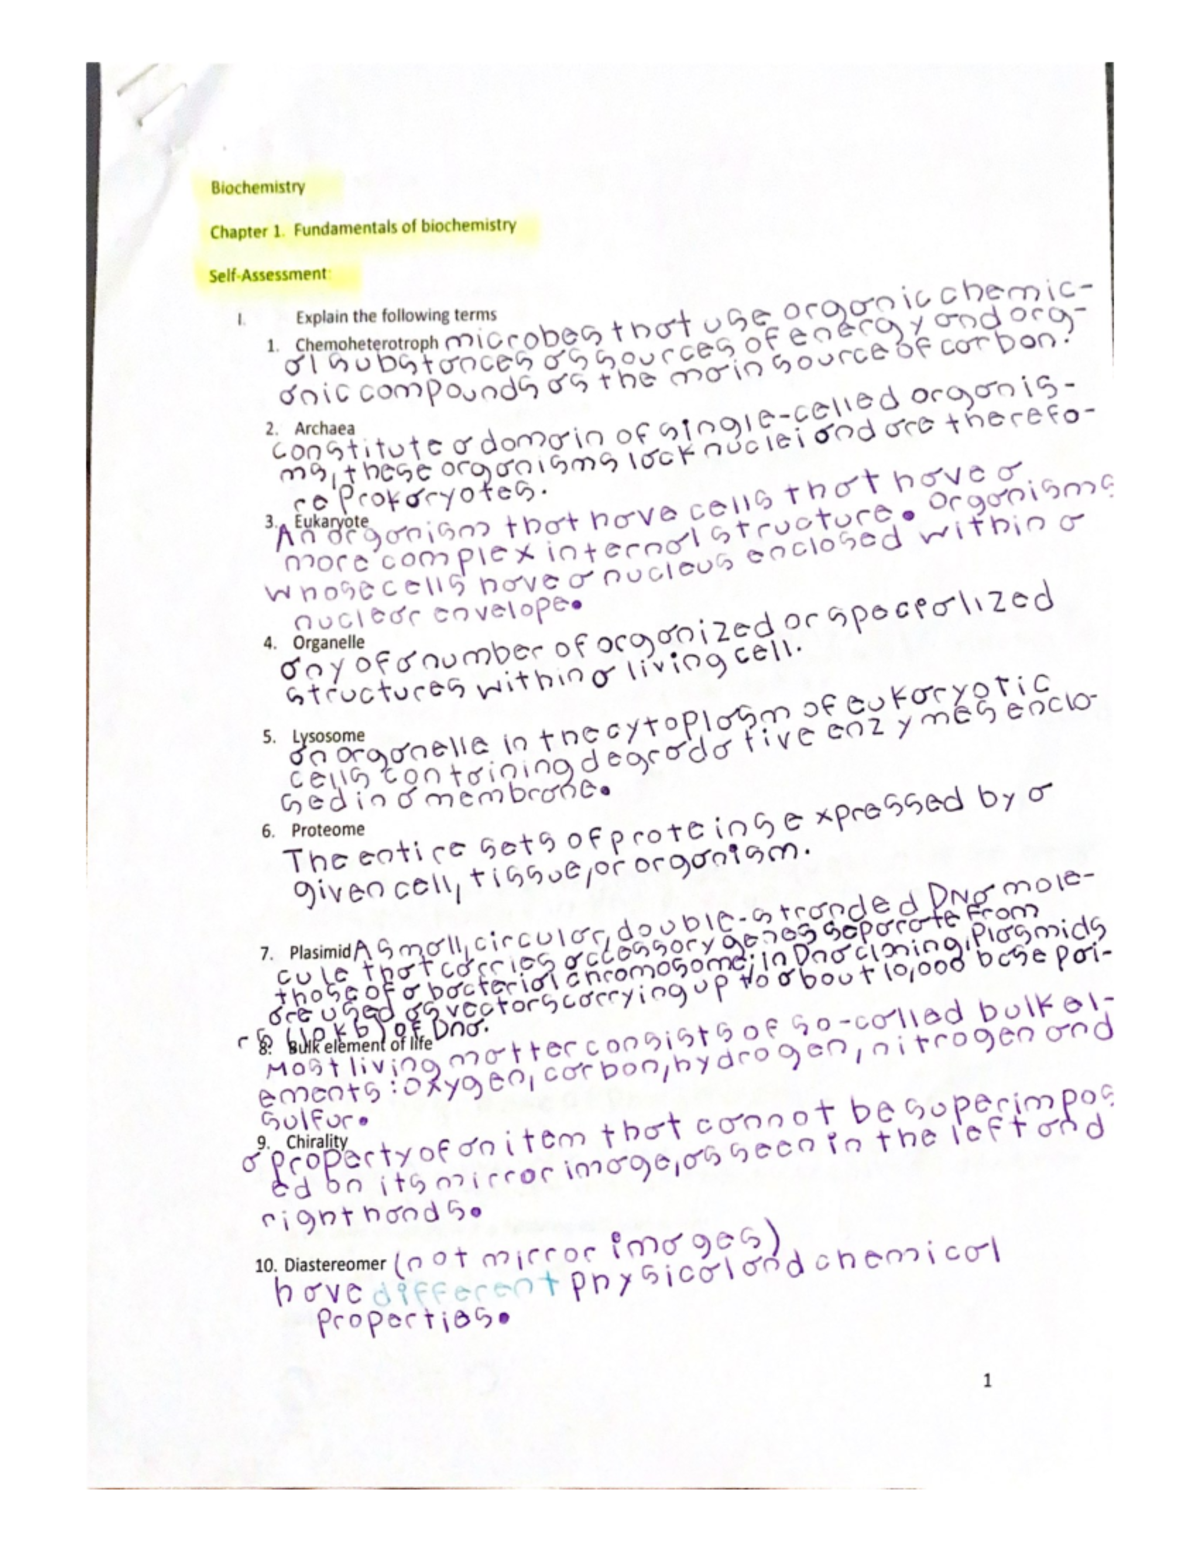 Biochemistry
Chapter 1. Fundamentals of biochemistry
Self-Assessment:
I. Explain the following terms
1. Chemoheterotroph microbes that use organic chemic-
al substances as sources of energy and org-
anic compounds as the main source of carbon.
2. Archaea
constitute a domain of single-celled organis-
ms, these organisms lack nuclei and are therefo-
re prokaryotes.
3. Eukaryote
An organism that have cells that have a
more complex internal structure. Organisms
whose cells have a nucleus enclosed within a
nuclear envelope.
4. Organelle
any of a number of organized or specialized
structures within a living cell.
5. Lysosome
an organelle in the cytoplasm of eukaryotic
cells containing degradative enzymes enclo-
sed in a membrane.
6. Proteome
The entire sets of proteins expressed by a
given cell, tissue, or organism.
7. Plasimid A small, circular, double-stranded DNA mole-
cule that carries accessory genes separate from
those of a bacterial chromosome; in DNA cloning, Plasmids
are used as vectors carrying up to about 10,000 base pai-
rs (10 kb) of DNA.
8. Bulk element of life
Most living matter consists of so-called bulk el-
ements: oxygen, carbon, hydrogen, nitrogen and
sulfur.
9. Chirality
a property of an item that cannot be superimpos
ed on its mirror image, as seen in the left and
right hands.
10. Diastereomer (not mirror images)
have different physical and chemical
Properties.
1